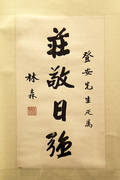 登安先生正屬
莊敬日強
林森